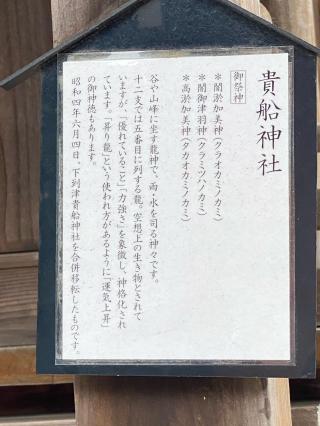 貴船神社
御祭神
＊闇淤加美神（クラオカミノカミ）
＊闇御津羽神（クラミツハノカミ）
＊高淤加美神（タカオカミノカミ）
谷や山峰に坐す龍神で、雨・水を司る神々です。
十二支では五番目に列する龍。空想上の生き物とされて
いますが、「優れていること」「力強さ」を象徴し、神格化され
ています。「昇り龍」という使われ方があるように「運気上昇」
の御神徳もあります。
昭和四年六月四日、下到津貴船神社を合併移転したものです。